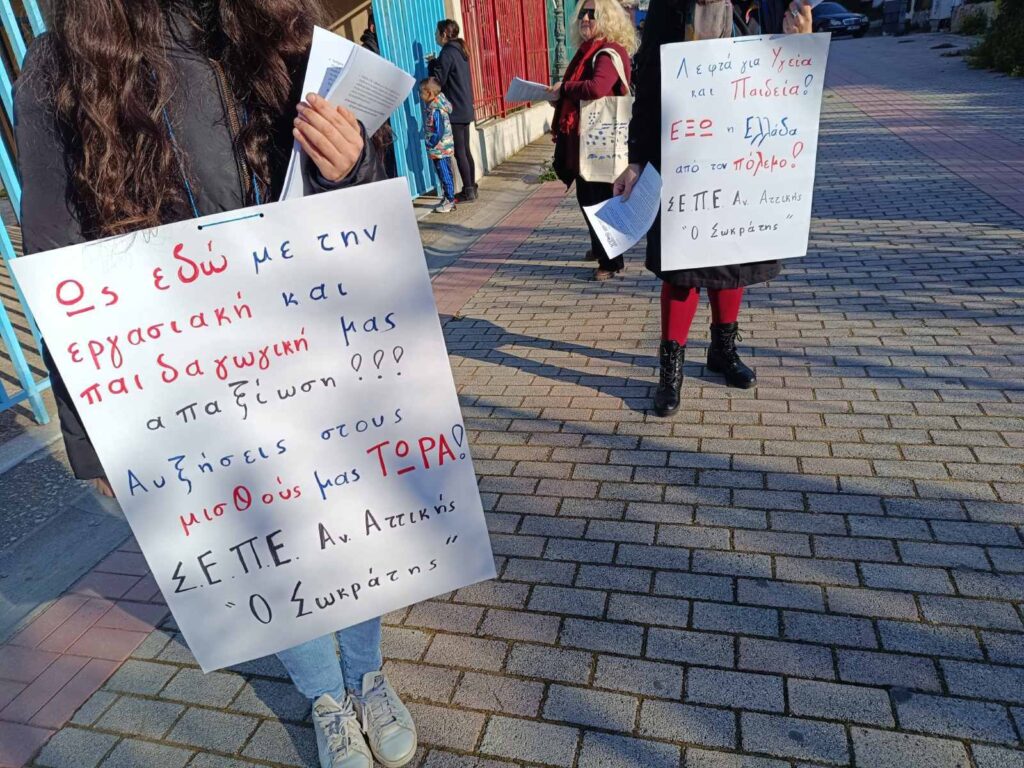 Ως εδώ με την
εργασιακή και
παιδαγωγική μας
απαξίωση!!!
Αυξήσεις στους
μισθούς μας ΤΩΡΑ!
Σ.Ε.ΠΕ. Αν. Αττικής
"Ο Σωκράτης"
Λεφτά για Υγεία
και Παιδεία!
ΕΞΩ η Ελλάδα
από τον πόλεμο!
ΣΕΠΕ Αν. Αττικής
"Ο Σωκράτης"